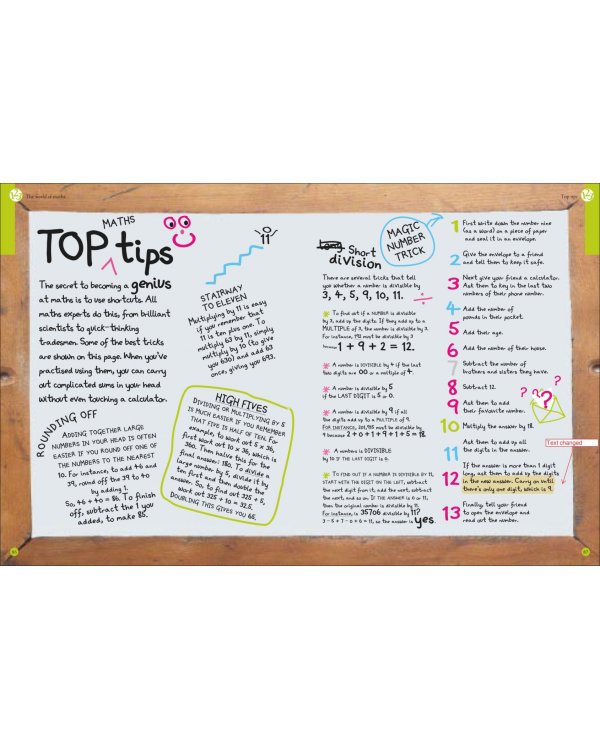 The world of maths
MATHS
TOP tips
The secret to becoming a genius
at maths is to use shortcuts. All
maths experts do this, from brilliant
scientists to quick-thinking
tradesmen. Some of the best tricks
are shown on this page. When you've
practised using them, you can carry
out complicated sums in your head
without even touching a calculator.
ROUNDING OFF
ADDING TOGETHER LARGE
NUMBERS IN YOUR HEAD IS OFTEN
EASIER IF YOU ROUND OFF ONE OF
THE NUMBERS TO THE NEAREST
10. For instance, to add 46 and
39, round off the 39 to 40
by adding 1.
So, 46 + 40 = 86. To finish
off, subtract the 1 you
added, to make 85.
11
STAIRWAY
TO ELEVEN
Multiplying by 11 is easy
if you remember that
11 is ten plus one. To
multiply 63 by 11, simply
multiply by 10 (to give
you 630) and add 63
once, giving you 693.
HIGH FIVES
DIVIDING OR MULTIPLYING BY 5
IS MUCH EASIER IF YOU REMEMBER
THAT FIVE IS HALF OF TEN. FOR
example, to work out 5 x 36,
first work out 10 x 36, which is
360. Then halve this for the
final answer: 180. To divide a
large number by 5, divide it by
ten first and then double the
answer. So, to find out 325 ÷ 5,
work out 325 ÷ 10 = 32.5.
DOUBLING THIS GIVES YOU 65.
Top tips
Long Short
division
There are several tricks that tell
you whether a number is divisible by
3, 4, 5, 9, 10, 11.
To find out if a NUMBER is divisible
by 3, add up the digits. If they add up to a
MULTIPLE OF 3, the number is divisible by 3.
For instance, 192 must be divisible by 3
because 1 + 9 + 2 = 12.
A number is DIVISIBLE by 4 if the last
two digits are 00 or a multiple of 4.
A number is divisible by 5
if the LAST DIGIT is 5 or 0.
A number is divisible by 9 if all
the digits add up to a MULTIPLE OF 9.
FOR INSTANCE, 201,915 must be divisible by
9 because 2 + 0 + 1 + 9 + 1 + 5 = 18.
A number is DIVISIBLE
by 10 IF THE LAST DIGIT IS 0.
TO FIND OUT IF A NUMBER IS DIVISIBLE BY 11,
START WITH THE DIGIT ON THE LEFT, subtract
the next digit from it, add the next, subtract
the next, and so on. IF THE ANSWER is 0 or 11,
then the original number is divisible by 11.
For instance, is 35706 divisible by 11?
3 - 5 + 7 - 0 + 6 = 11, so the answer is yes.
MAGIC
NUMBER
TRICK
1 First write down the number nine
(as a word) on a piece of paper
and seal it in an envelope.
2 Give the envelope to a friend
and tell them to keep it safe.
3 Next give your friend a calculator.
Ask them to key in the last two
numbers of their phone number.
4 Add the number of
pounds in their pocket.
5 Add their age.
6 Add the number of their house.
7 Subtract the number of
brothers and sisters they have.
8 Subtract 12.
9 Ask them to add
their favourite number.
10 Multiply the answer by 18.
11 Ask them to add up all
the digits in the answer.
12 If the answer is more than 1 digit
long, ask them to add up the digits
in the new answer. Carry on until
there's only one digit, which is 9.
13 Finally, tell your friend
to open the envelope and
read out the number.
? ? ?
Text changed